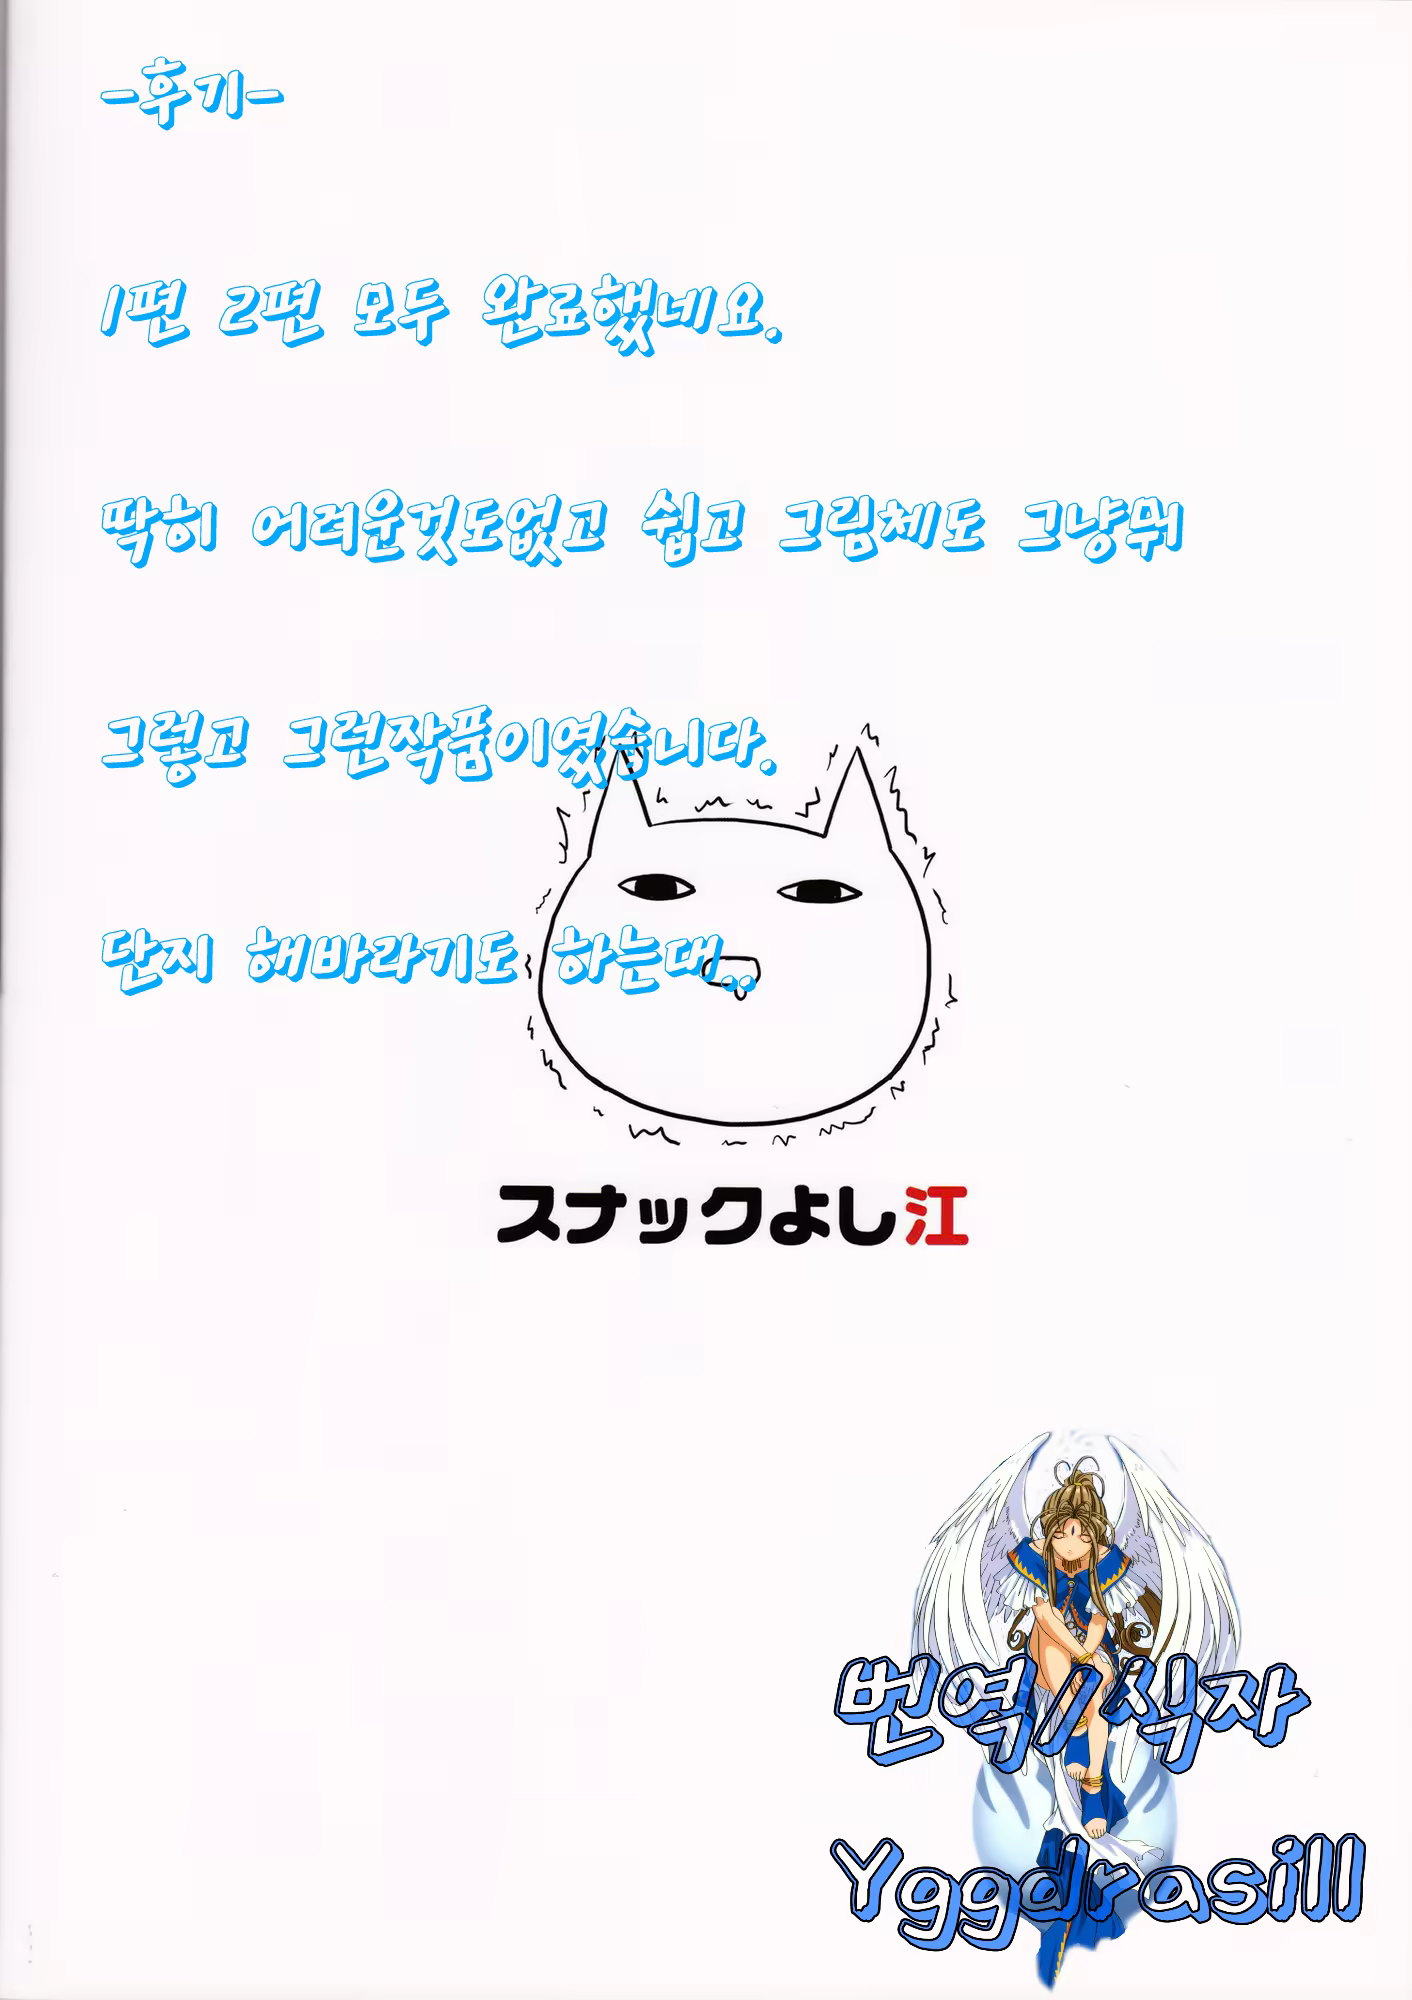 -후기-
1편 2편 모두 완료했네요.
딱히 어려운것도없고 쉽고 그림체도 그냥뭐
그렇고 그런작품이였습니다.
단지 해바라기도 하는대..
スナックよし江
번역/식자
Yggdrasill